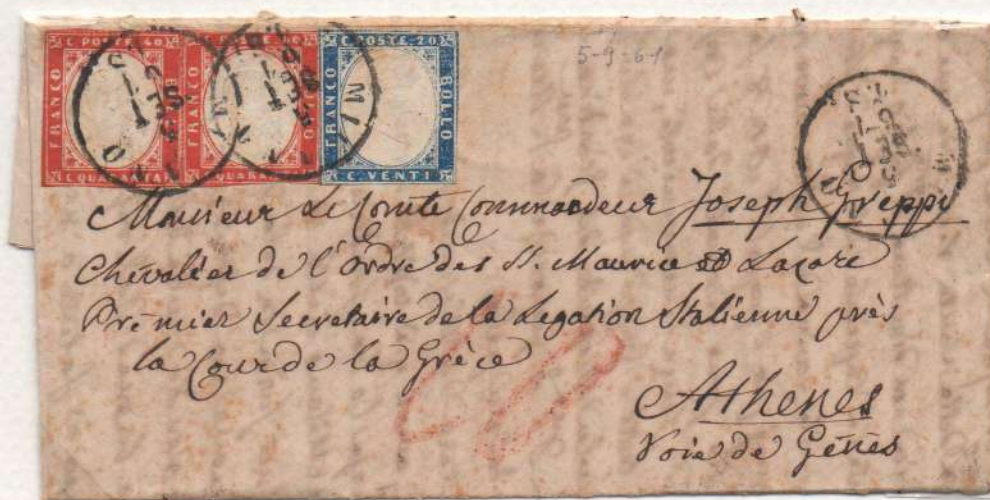 C. POSTE 40
FRANCO
C. QUARANTA
FRANCO
BOLLO
C. QUARANTA
C. POSTE. 20
FRANCO
BOLLO
C. VENTI
MIL
5-9-61
Monsieur Le Comte Commandeur Joseph Greppi
Chevalier de l'ordre des SS. Maurice et Lazare
Premier Secretaire de la Legation Italienne près
la Cour de la Grèce
Athenes
Voie de Gênes